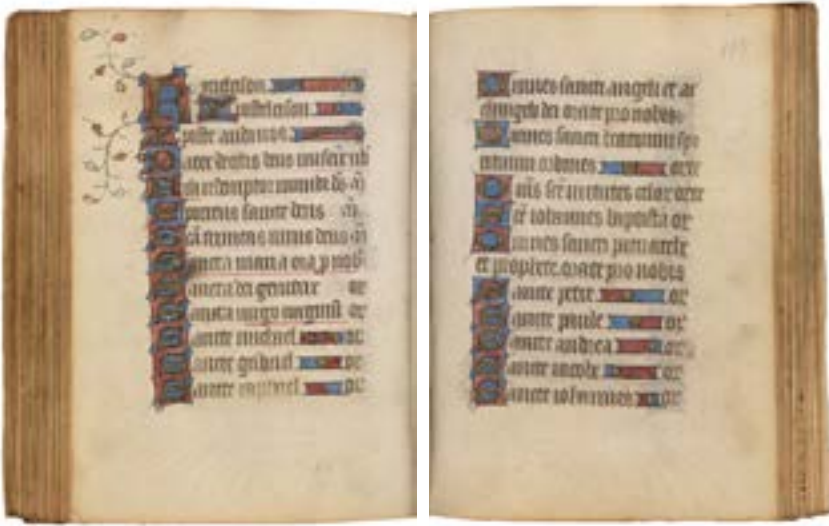 Kyrieleison
Xpisteleison
Xpiste audi nos
Pater de celis deus miserere nob
Fili redemptor mundi ds m
Spiritus sancte deus m
Sca trinitas unus deus m
Sancta maria ora p nob
Sancta dei genitrix or
Sancta uirgo uirginum or
Sancte michael or
Sancte gabriel or
Sancte raphael or
Omnes sancti angeli et ar
changeli dei orate pro nobis
Omnes sancti beatorum spi
rituum ordines orte
Oms sce uirtutes celor orte
Sce iohannes baptista or
Omnes sancti patriarche
et prophete orate pro nobis
Sancte petre or
Sancte paule or
Sancte andrea or
Sancte iacobe or
Sancte iohannes or